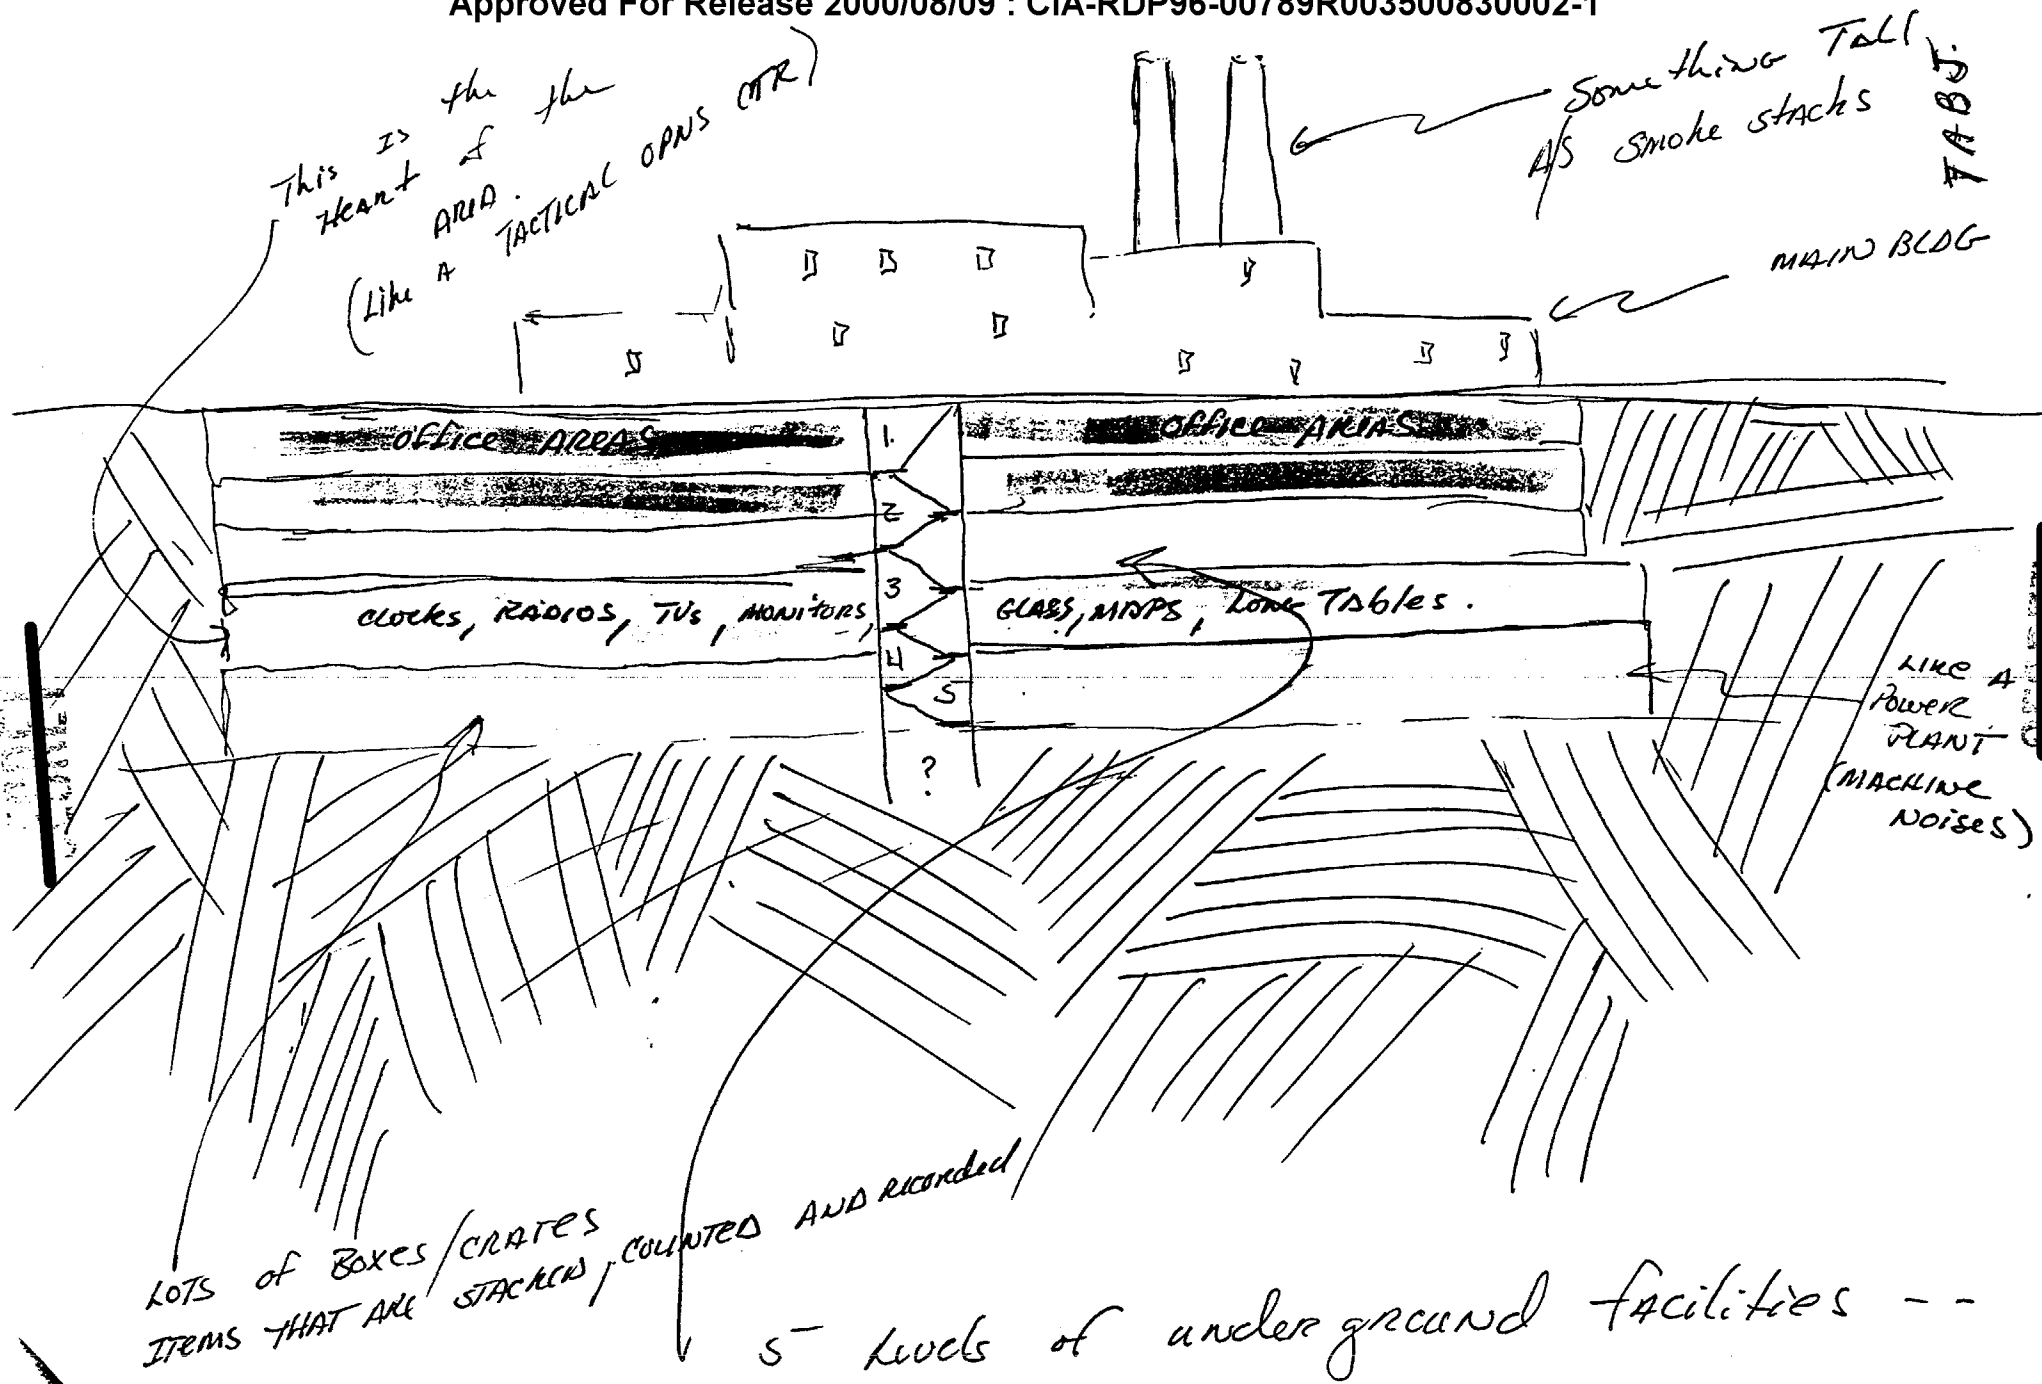 Approved For Release 2000/08/09 : CIA-RDP96-00789R003500830002-1
TAB J.
This is the
Heart of the
AREA.
(Like A TACTICAL OPNS CTR)
Something Tall
A/S Smoke stacks
MAIN BLDG
office AREAS
1.
office AREAS
2
3
CLOCKS, RADIOS, TVs, MONITORS,
GLASS, MAPS, Long Tables.
4
5
?
LIKE A
POWER
PLANT
(MACHINE
NOISES)
LOTS of Boxes/CRATES
ITEMS THAT ARE STACKED, COUNTED AND Recorded
5 Levels of underground facilities --